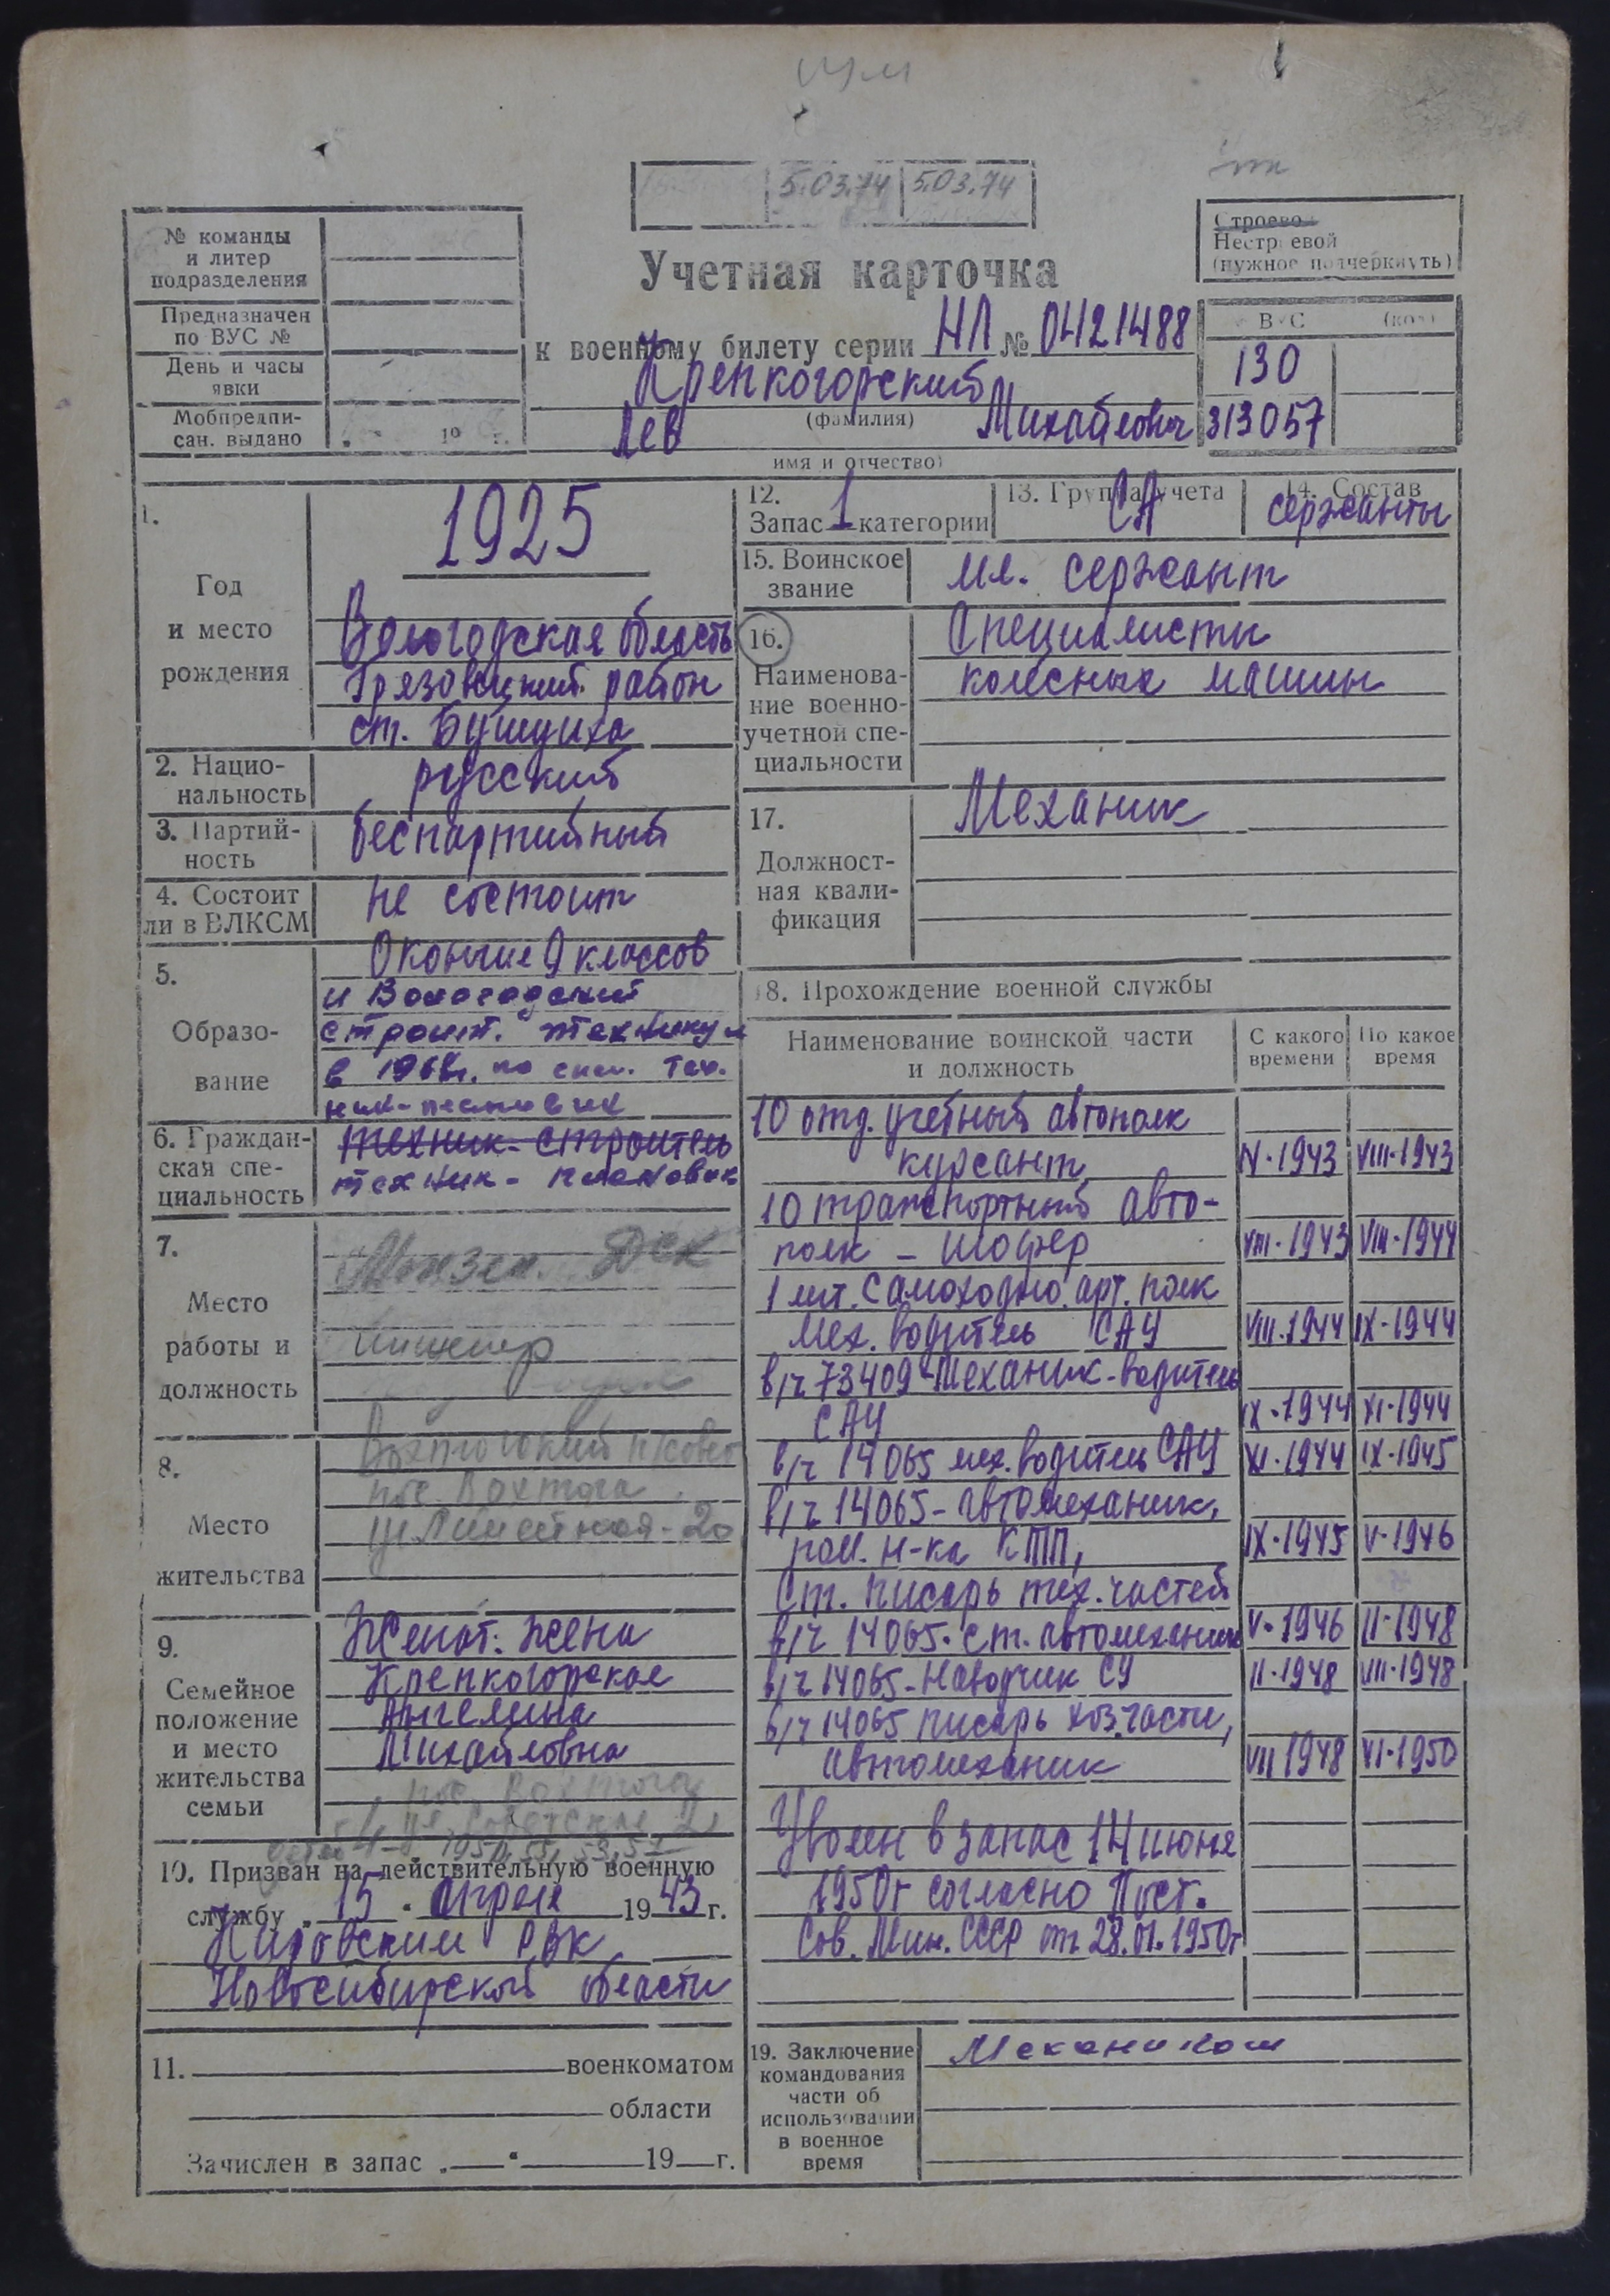 5.03.74 5.03.74
№ команды
и литер
подразделения
Предназначен
по ВУС №
День и часы
явки
Мобпредпи-
сан. выдано
" " 19 г.
Строево
Нестроевой
(нужное подчеркнуть)
Учетная карточка
к военному билету серии НЛ № 0421488
Крепкогорский
(фамилия)
Лев Михайлович
имя и отчество)
ВУС (код)
130
313057
1.
Год
и место
рождения
1925
Вологодская область
Грязовецкий район
ст. Бушуиха
2. Нацио-
нальность
русский
3. Партий-
ность
беспартийный
4. Состоит
ли в ВЛКСМ
не состоит
5.
Образо-
вание
Окончил 9 классов
и Вологодский
строит. техникум
в 1968г. по спец. тех-
ник-плановик
6. Граждан-
ская спе-
циальность
техник-строитель
техник-плановик
7.
Место
работы и
должность
Монзен. ДСК
инженер
8.
Место
жительства
Вохтогский п/совет
пос. Вохтога
9.
Семейное
положение
и место
жительства
семьи
Женат. жена
Крепкогорская
Ангелина
Михайловна
пос. Вохтога
ул. Советская 21
10. Призван на действительную военную
службу "15" апреля 1943 г.
Кировским РВК
Новосибирской области
11. военкоматом
области
Зачислен в запас " " 19 г.
12.
Запас 1 категории
13. Группа учета
СА
14. Состав
сержанты
15. Воинское
звание
мл. сержант
16.
Наименова-
ние военно-
учетной спе-
циальности
Специалисты
колесных машин
17.
Должност-
ная квали-
фикация
Механик
18. Прохождение военной службы
Наименование воинской части
и должность
С какого
времени
По какое
время
10 отд. учебный автополк
курсант IV-1943 VIII-1943
10 транспортный авто-
полк - шофер VIII-1943 VIII-1944
1 лит. самоходно. арт. полк
мех. водитель САУ VIII-1944 IX-1944
в/ч 73409 Механик-водитель
САУ IX-1944 XI-1944
в/ч 14065 мех. водитель САУ XI-1944 IX-1945
в/ч 14065-автомеханик,
пом. н-ка КТП, IX-1945 V-1946
Ст. писарь тех. частей
в/ч 14065. ст. автомеханик V-1946 II-1948
в/ч 14065-Наводчик СУ II-1948 VIII-1948
в/ч 14065 писарь хоз. части,
автомеханик VIII 1948 VI-1950
Уволен в запас 14 июня
1950г согласно Пост.
Сов. Мин. СССР от 28.01.1950г
19. Заключение
командования
части об
использовании
в военное
время
Механиком